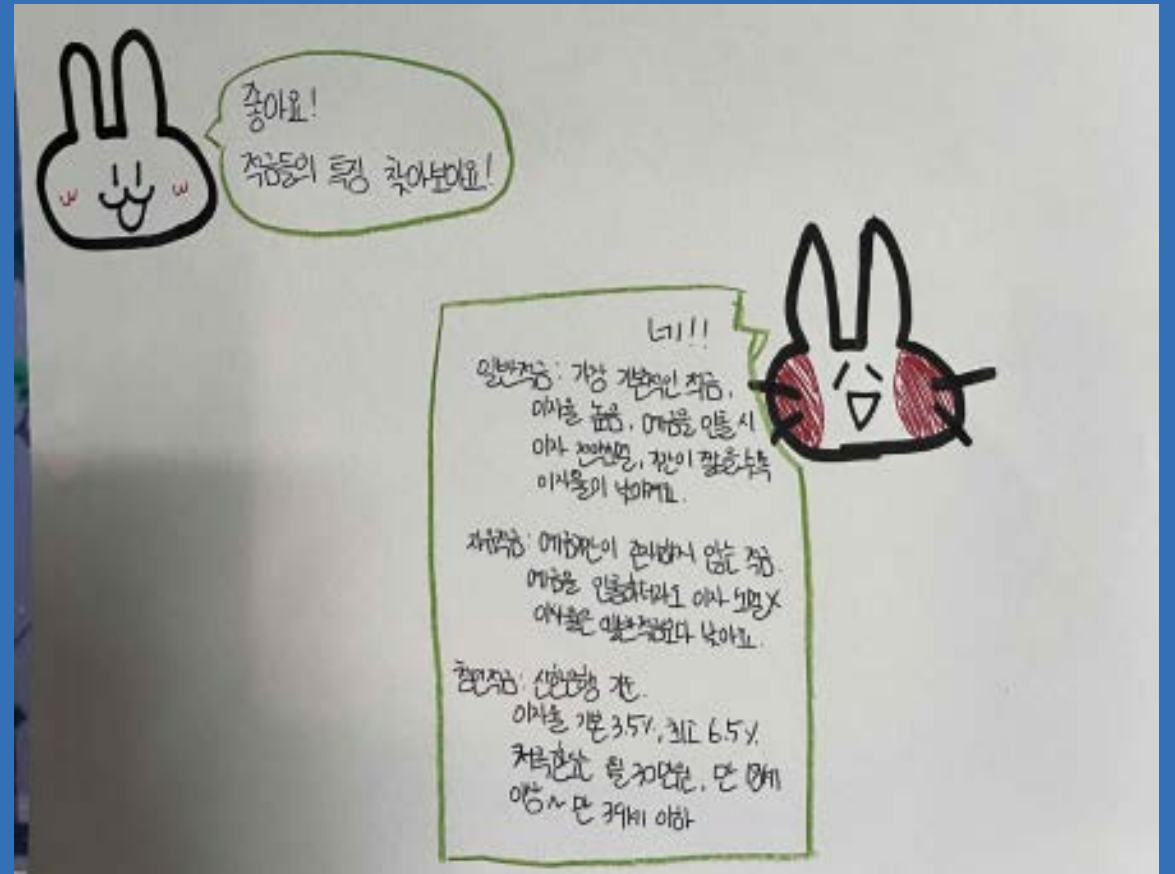 좋아요!
적금들의 특징 찾아보아요!
네!!
일반적금: 가장 기본적인 적금,
이자율 높음, 예금을 인출 시
이자 전액소멸, 기간이 짧을수록
이자율이 낮아져요.
자유적금: 예금기간이 존재하지 않는 적금.
예금을 인출하더라도 이자 소멸X
이자율은 일반적금보다 낮아요.
청년적금: 신한은행 기준.
이자율 기본 3.5%, 최고 6.5%.
저축한도는 월 30만원, 만 18세
이상~ 만 39세 이하